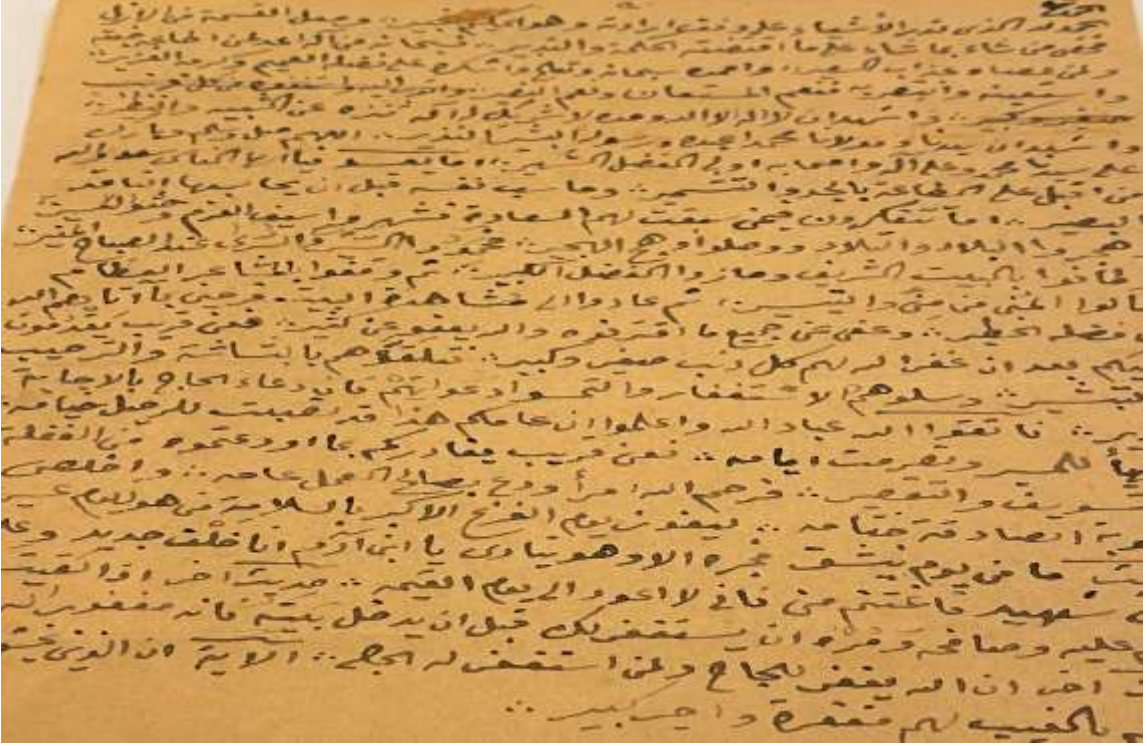 الحمد لله الذي قدر الأشياء على وفق إرادته وهو الحكيم الخبير وجعل القسمة من الأزل
فخص من شاء بما شاء على ما اقتضته الحكمة والتدبير فسبحانه من إله
ولمن عصاه عذاب السعير واحمده سبحانه وتعالى واشكره على فضله العميم
واستعينه واستنصر به فنعم المستعان ونعم النصير واتوب اليه واستغفره من كل ذنب
صغير وكبير واشهد ان لا اله الا الله وحده لا شريك له اله تنزه عن الشبيه والنظير
واشهد ان سيدنا ومولانا محمدا عبده ورسوله البشير النذير اللهم صل وسلم وبارك
على سيدنا محمد وعلى اله واصحابه اولي الفضل الشهير اما بعد فيا
من اقبل على الطاعة بالجد والتشمير وحاسب نفسه قبل ان يحاسبها الناقد
البصير اما تتفكرون فيمن سبقت لهم السعادة فشهروا سيف العزم
هجروا البلاد والتلاد ووصلوا وهج الهجير فحمدوا السير والسرى عند الصباح
طافوا بالبيت الشريف وحازوا الفضل الكبير ثم وقفوا بالمشاعر العظام
نالوا المنى من منى والتيسير ثم عادوا الى مشاهدة البيت فرحين بما اتاهم الله
فضله الخطير وعفى عن جميع ما اقترفوه والله يعفو عن كثير فعن قريب يقدمون
عليكم بعد ان غفر الله لهم كل ذنب صغير وكبير فتلقوهم بالبشاشة والترحيب
والتبشير وسلوهم الاستغفار والتمسوا دعواتهم فان دعاء الحاج بالاجابة
فاتقوا الله عباد الله واعلموا ان عامكم هذا قد للرحيل خيامه
للسير وتصرمت ايامه فعن قريب يفارقكم بما اودعتموه من الغفلة
والتسويف والتقصير فرحم الله امرأ ودع بصالح العمل عامه واخلص
توبة الصادقة ختامه ليفوز يوم الفزع الاكبر بالسلامة من هول يوم عسير
ما من يوم ينشق فجره الا وهو ينادى يا ابن ادم انا خلق جديد وعلى
شهيد فاغتنم منى فاني لا اعود الى يوم القيمه حديث اخر اذا لقيت
عليه وصافحه ومره ان يستغفر لك قبل ان يدخل بيته فانه مغفور له
اخر ان الله يغفر للحاج ولمن استغفر له الحاج الاية ان الذين يخشون
بالغيب لهم مغفرة واجر كبير